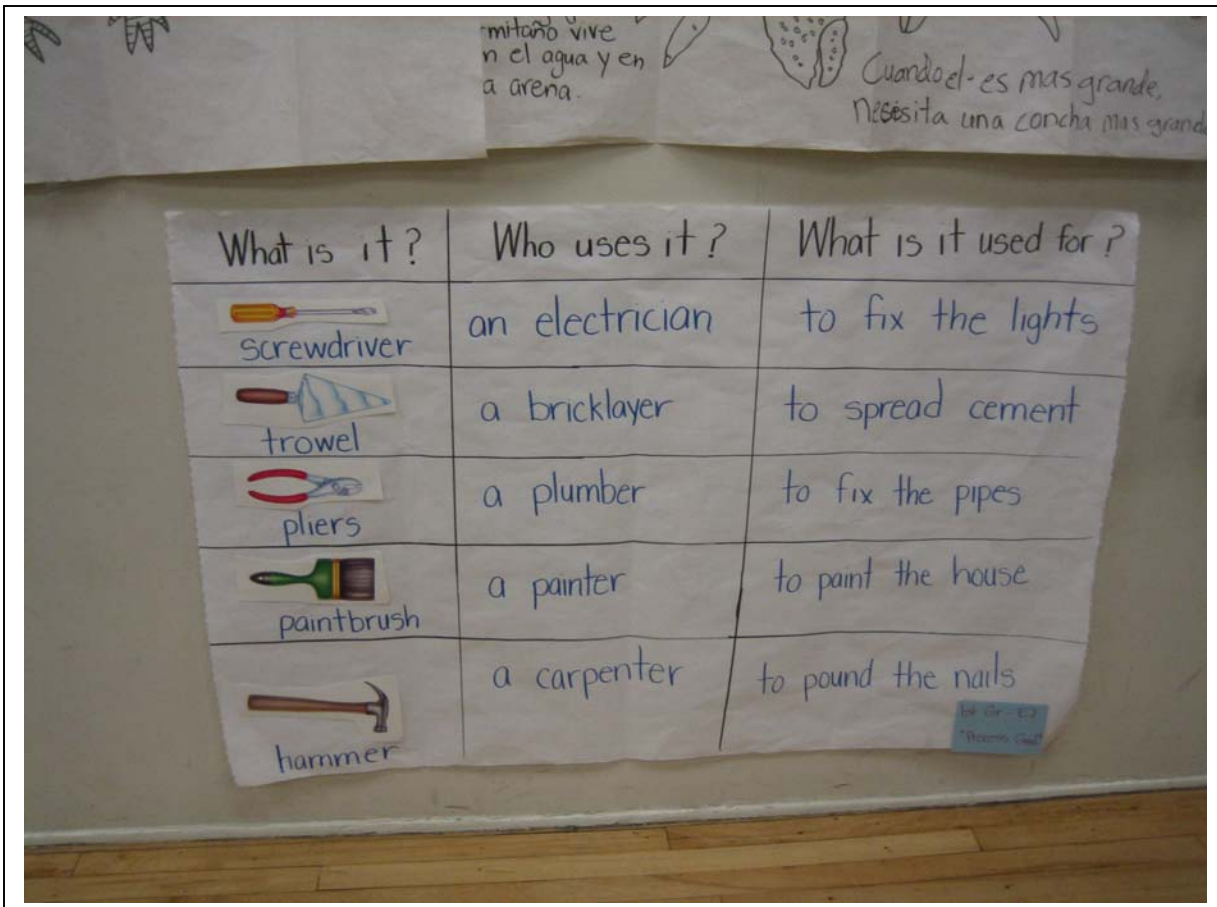 mitaño vive
n el agua y en
a arena.
Cuando el es mas grande,
nesesita una concha mas grande
What is it? Who uses it? What is it used for?
screwdriver an electrician to fix the lights
trowel a bricklayer to spread cement
pliers a plumber to fix the pipes
paintbrush a painter to paint the house
hammer a carpenter to pound the nails
1st Gr -
"Process Grid"